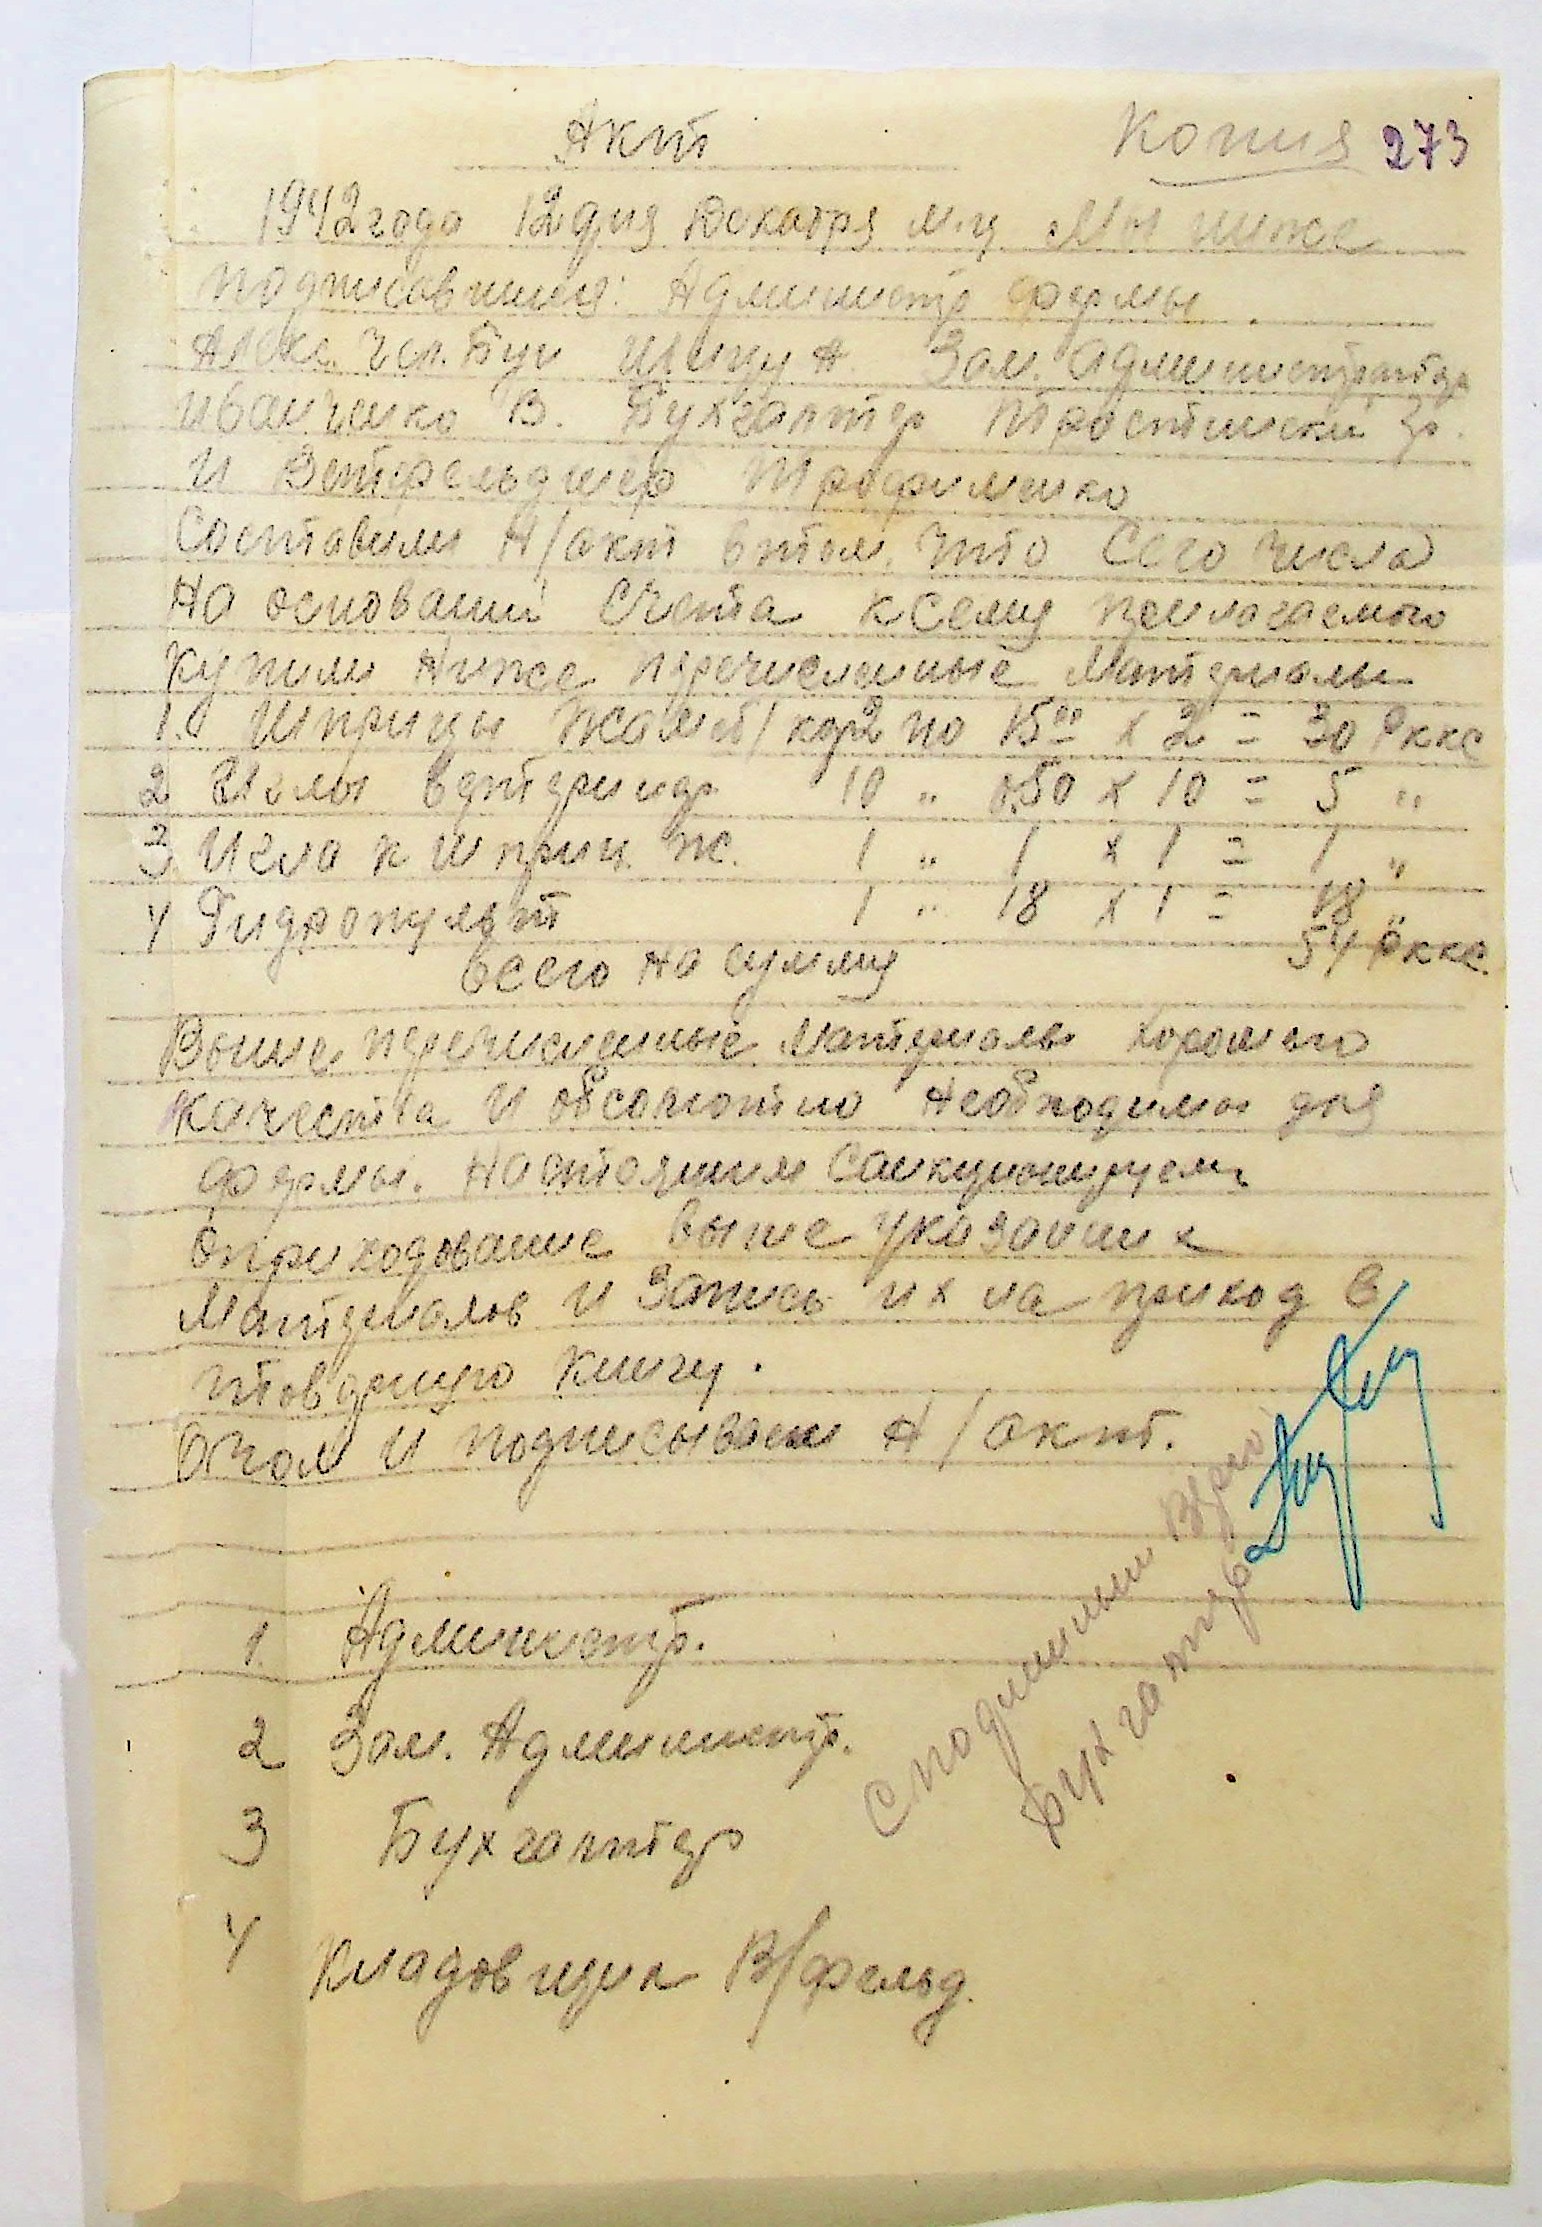 Акт
Копия 273
1942 года 12 дня Декабря м-ца Мы ниже
подписавшиеся: Администр фермы
Алекс. Буг А. Зам. администратора
Иванченко В. Бухгалтер Тростинский Гр.
и Ветфельдшер Трофименко
Составили Н/акт втом, что Сего числа
На основании Счета к Сему прилагаемого
купили Ниже перечисленные Материалы
1. Шприцы Жанет/ 2 по 15⁰⁰ х 2 = 30 Рккс
2 Иглы ветеринар 10 " 0.50 х 10 = 5 "
3 Игла к шприц. Ж. 1 " 1 х 1 = 1 "
4 Гидропульт 1 " 18 х 1 = 18 "
всего на сумму 54 Рккс.
Выше перечисленные Материалы хорошего
качества и абсолютно необходимы для
фермы. Настоящим Санкционируем
оприходование выше указанных
Материалов и Запись их на приход в
книгу.
О чом и подписываем Н/акт.
С подлинным верно
Бухгалтер
1. Администр.
2 Зам. Администр.
3 Бухгалтер
4 Кладовщик В/фельд.